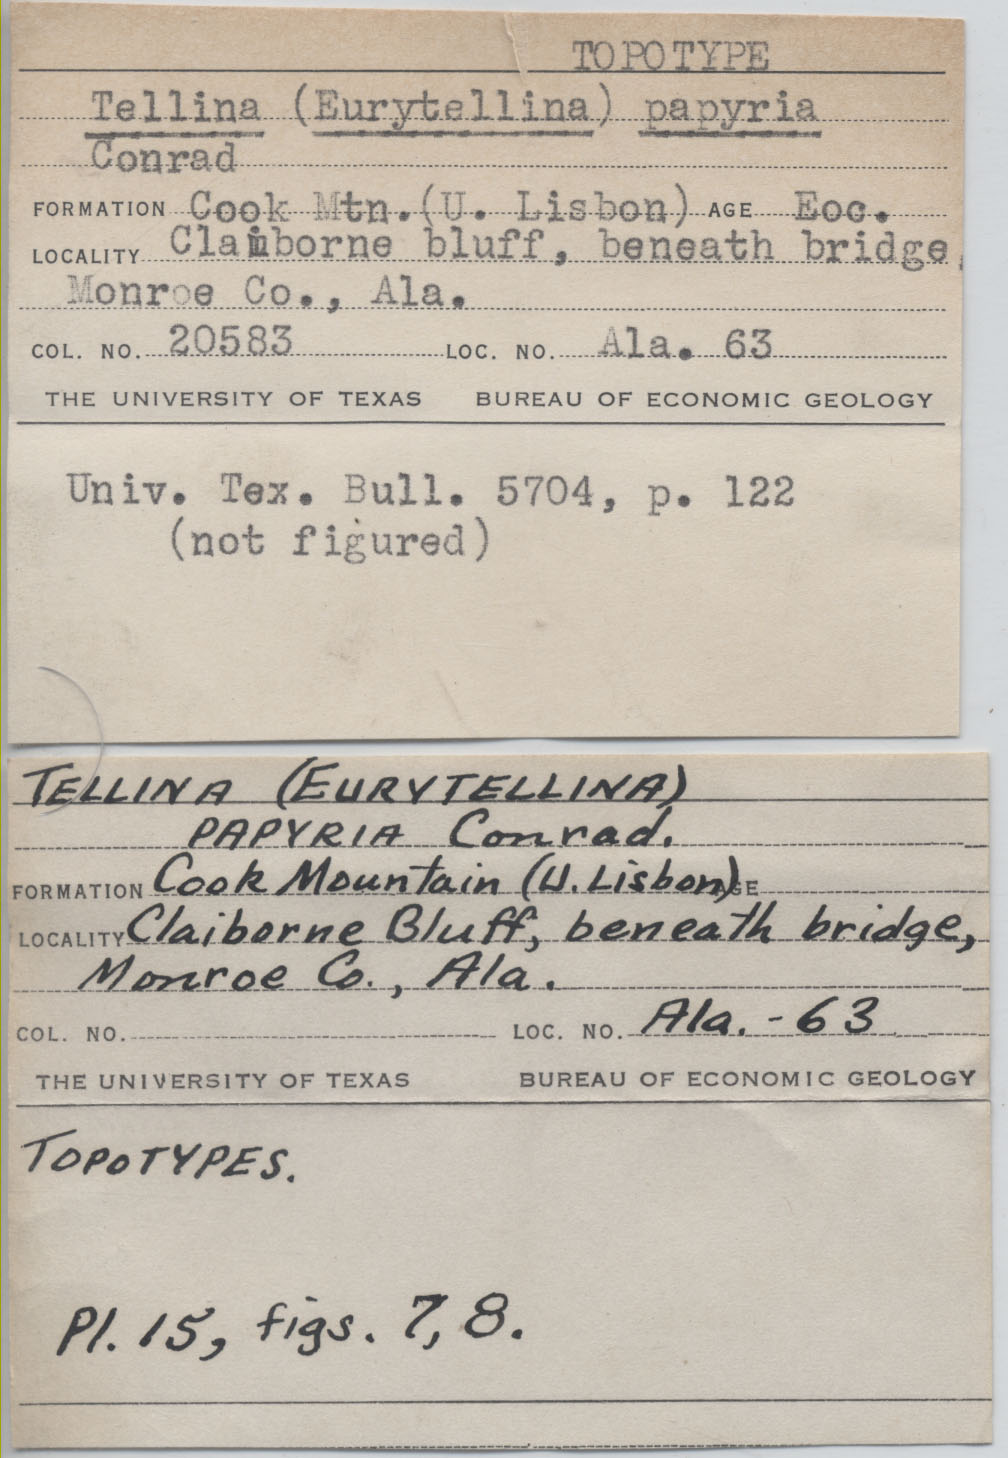 TOPOTYPE
Tellina (Eurytellina) papyria
Conrad
FORMATION Cook Mtn.(U. Lisbon) AGE Eoc.
LOCALITY Claiborne bluff, beneath bridge,
Monroe Co., Ala.
COL. NO. 20583 LOC. NO. Ala. 63
THE UNIVERSITY OF TEXAS BUREAU OF ECONOMIC GEOLOGY
Univ. Tex. Bull. 5704, p. 122
(not figured)
TELLINA (EURYTELLINA)
PAPYRIA Conrad.
FORMATION Cook Mountain (U. Lisbon) AGE
LOCALITY Claiborne Bluff, beneath bridge,
Monroe Co., Ala.
COL. NO. LOC. NO. Ala. - 63
THE UNIVERSITY OF TEXAS BUREAU OF ECONOMIC GEOLOGY
TOPOTYPES.
Pl. 15, figs. 7, 8.